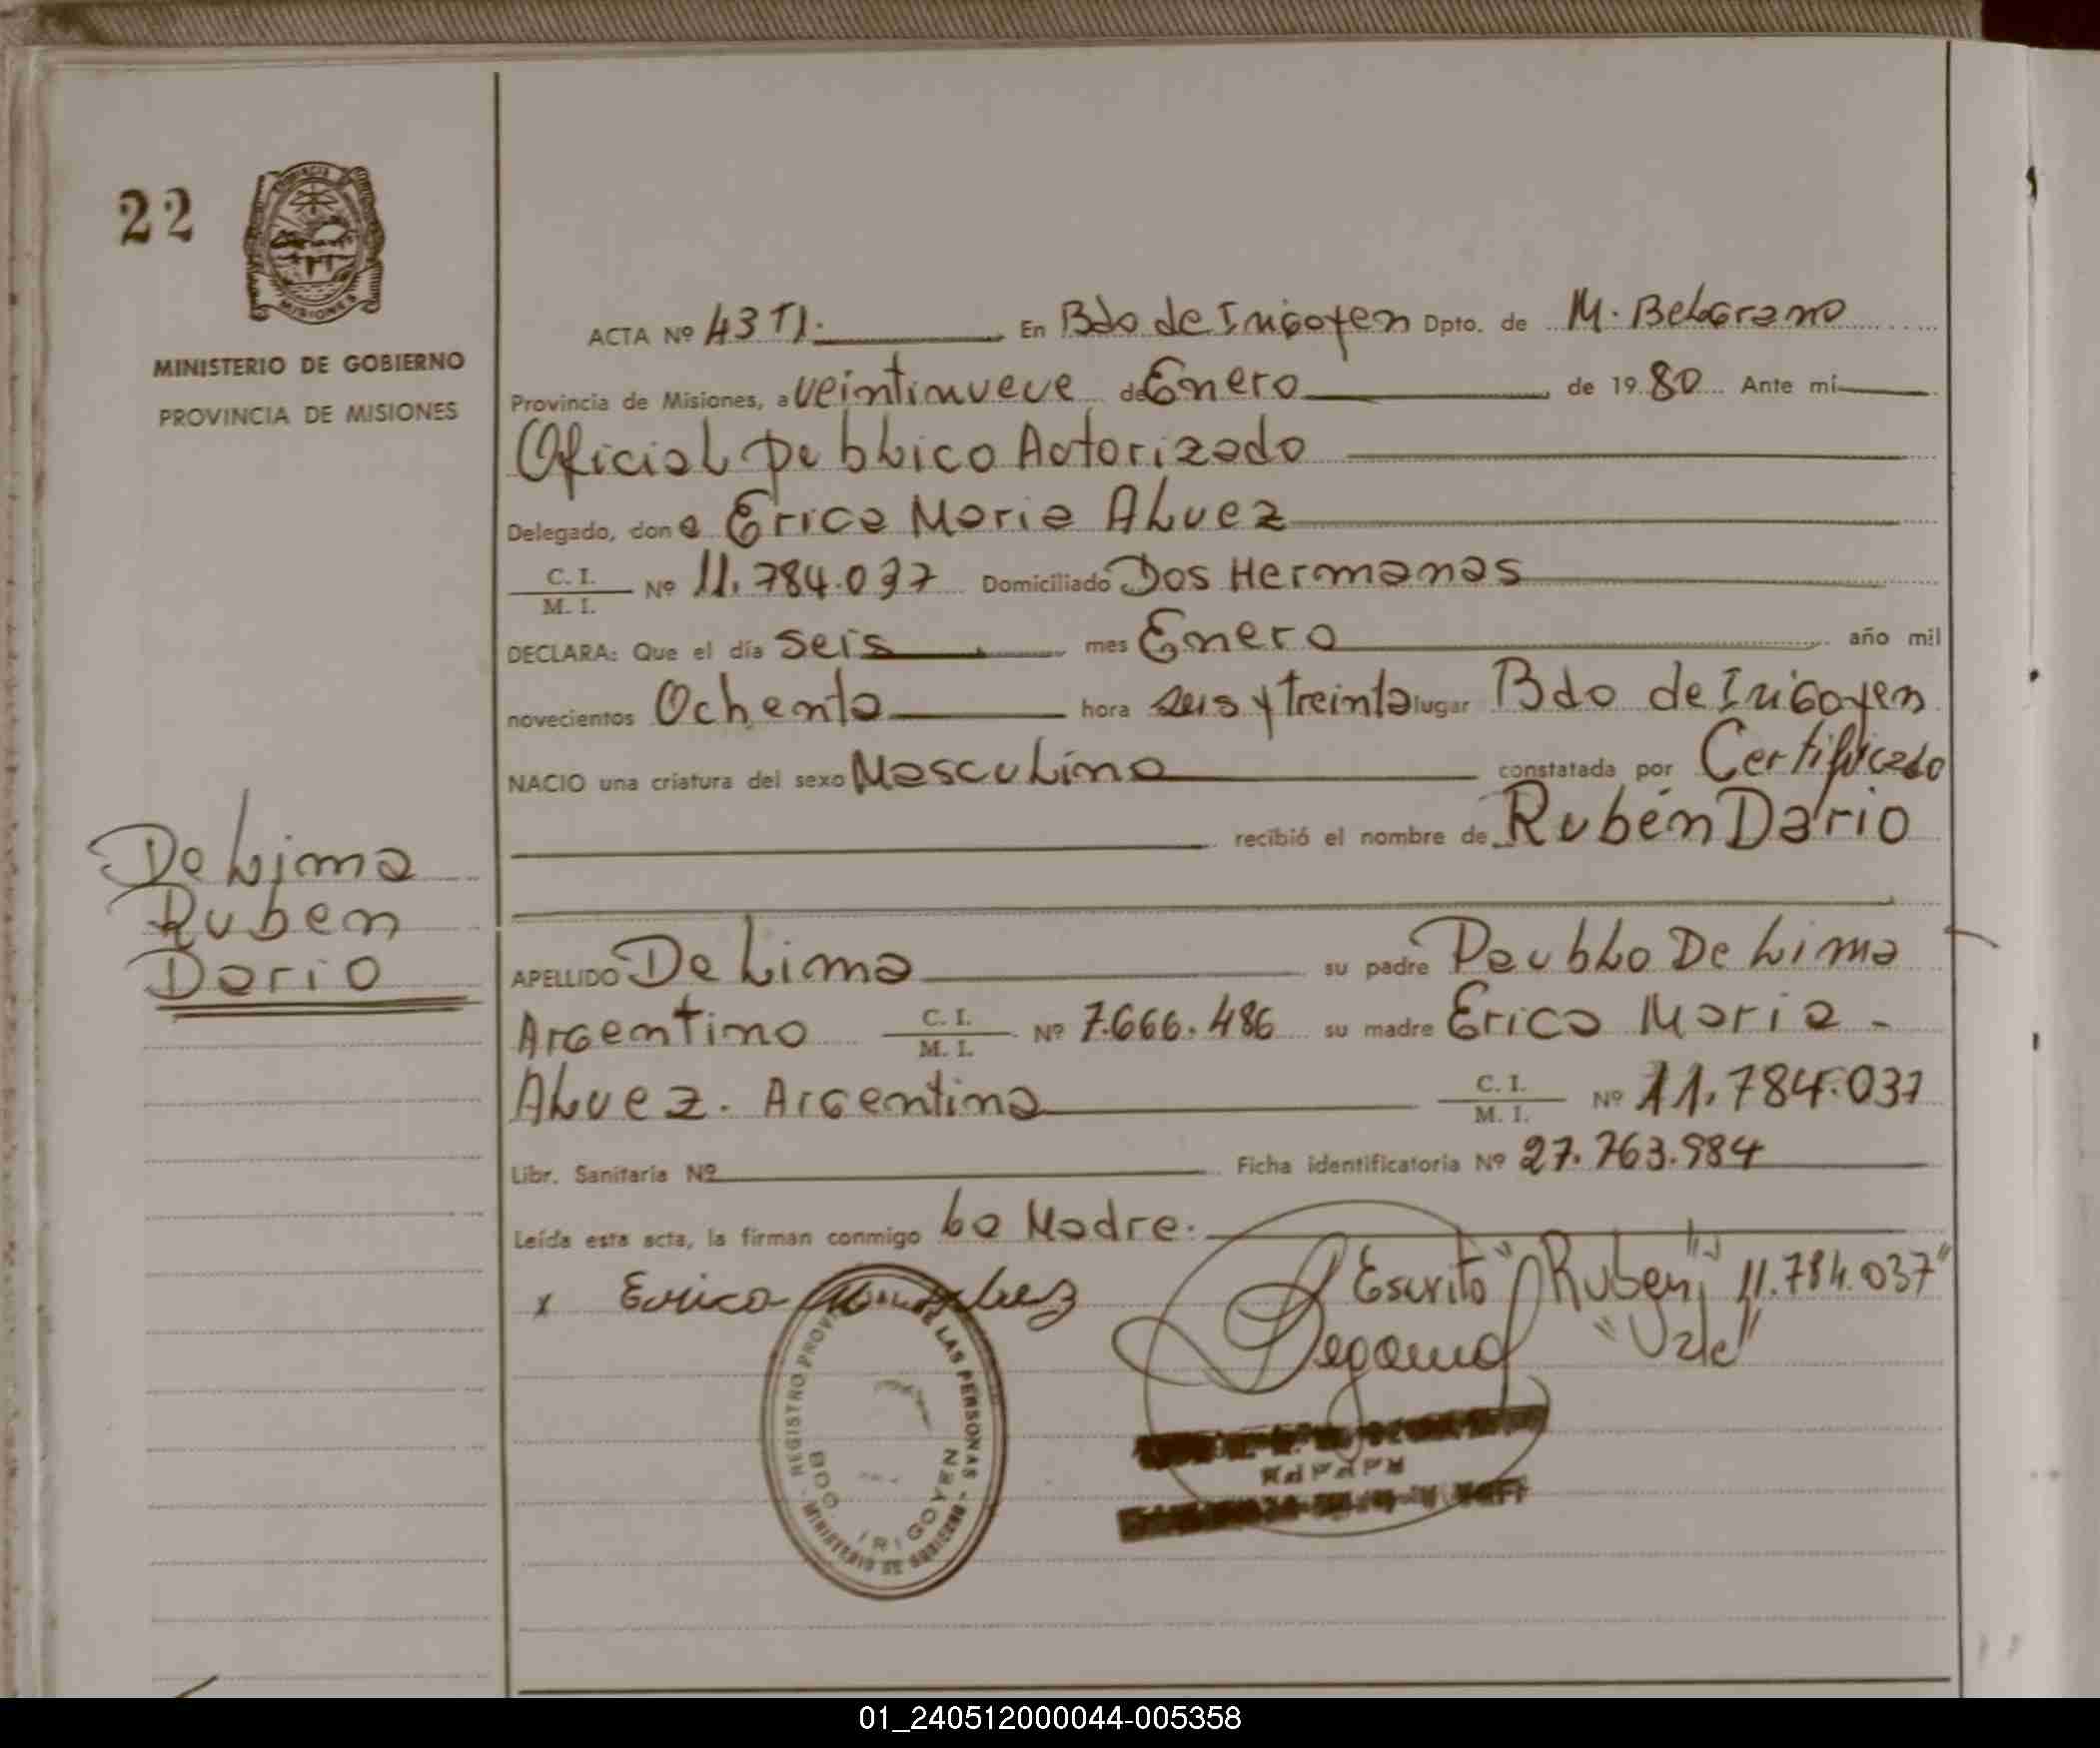 22
PROVINCIA DE MISIONES
MINISTERIO DE GOBIERNO
PROVINCIA DE MISIONES
De Lima
Ruben
Dario
ACTA Nº 43 T1. En Bdo de Irigoyen Dpto. de M. Belgrano
Provincia de Misiones, a veintinueve de Enero de 1980 Ante mí
Oficial publico Autorizado
Delegado, don a Erica Maria Alvez
C. I. / M. I. Nº 11.784.037 Domiciliado Dos Hermanas
DECLARA: Que el día seis mes Enero año mil
novecientos Ochenta hora seis y treinta lugar Bdo de Irigoyen
NACIO una criatura del sexo Masculino constatada por Certificado
recibió el nombre de Rubén Dario
APELLIDO De Lima su padre Paublo De Lima
Argentino C. I. / M. I. Nº 7.666.486 su madre Erica Maria -
Alvez. Argentina C. I. / M. I. Nº 11.784.037
Libr. Sanitaria Nº Ficha identificatoria Nº 27.763.984
Leída esta acta, la firman conmigo La Madre.
x Erica Alvez
Escrito "Ruben" "11.784.037"
"Vale"
REGISTRO PROVINCIAL DE LAS PERSONAS - MINISTERIO DE GOBIERNO
BDO. IRIGOYEN
01_240512000044-005358